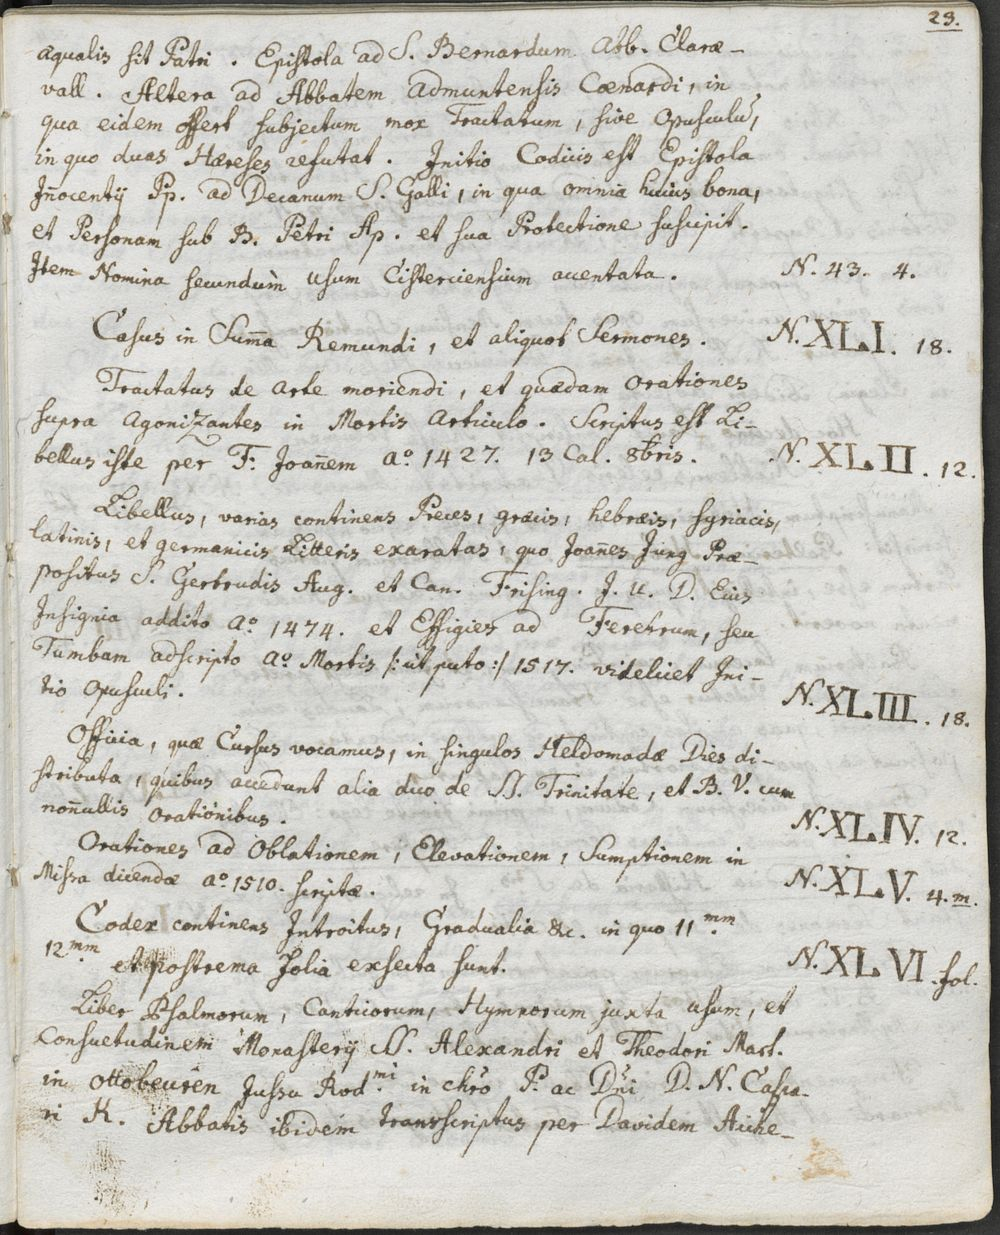 23.
aqualis sit Patri. Epistola ad S. Bernardum Abb. Claræ-
vall. Altera ad Abbatem Admuntensis Cœnardi, in
qua eidem offert subjectum mox Tractatum, sive Opusculũ,
in quo duas Hæreses refutat. Initio Codicis est Epistola
Iñocentij Pp. ad Decanum S. Galli, in qua omnia huius bona,
et Personam sub B. Petri Ap. et sua Protectione suscipit.
Item Nomina secundùm usum Cisterciensium accentata. N. 43. 4.
Casus in Sum̃a Remundi, et aliquot Sermones. N. XLI. 18.
Tractatus de Arte moriendi, et quædam Orationes
supra Agonizantes in Mortis Articulo. Scriptus est Li-
bellus iste per F. Joan̄em aº 1427. 13 Cal. 8bris. N. XLII. 12.
Libellus, varias continens Preces, græcis, hebræis, syriacis,
latinis, et germanicis Litteris exaratas, quo Joan̄es Jung Præ-
positus S. Gertrudis Aug. et Can. Frising. J. U. D. Eius
Insignia addito aº 1474. et Effigies ad Feretrum, seu
Tumbam adscripto aº Mortis /: ut puto :/ 1517. videlicet Ini-
tio Opusculi. N. XLIII. 18.
Officia, quæ Cursus vocamus, in singulos Hebdomadæ Dies di-
stributa, quibus accedunt alia duo de SS. Trinitate, et B. V. cum
non̄ullis Orationibus. N. XLIV. 12.
Orationes ad Oblationem, Elevationem, Sumptionem in
Missa dicendæ aº 1510. scriptæ. N. XLV. 4. m.
Codex continens Introitus, Gradualia &c. in quo 11mm.
12mm. et postrema Folia exsecta sunt. N. XLVI. fol.
Liber Psalmorum, Canticorum, Hymnorum juxta usum, et
Consuetudinem Monasterij SS. Alexandri et Theodori Mart.
in Ottobeuren Jussu Rvdmi in chr̃o P. ac Dñi D. N. Caspa-
ri K. Abbatis ibidem transscriptus per Davidem Aiche-